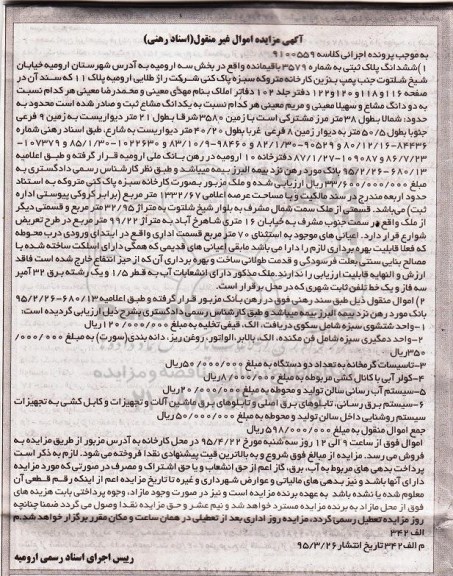 آگهی مزایده اموال غیر منقول(اسناد رهنی)
به موجب پرونده اجرائی کلاسه ۹۱۰۰۵۵۹
۱)ششدانگ پلاک ثبتی به شماره ۳۵۷۹ باقیمانده واقع در بخش سه ارومیه به آدرس شهرستان ارومیه خیابان
شیخ شلتوت جنب پمپ بنزین کارخانه متروکه سبزه پاک کنی شرکت راز طلایی ارومیه پلاک ۱۱ که سند آن در
صفحه ۱۱۶و۱۱۸ و ۱۲۰و۱۲۲ دفتر جلد ۱۰۲ دفاتر املاک بنام مهدی معینی و محمدرضا معینی هر کدام نسبت
به دو دانگ مشاع و سهیلا معینی و مریم معینی هر کدام نسبت به یکدانگ مشاع ثبت و صادر شده است محدود به
حدود: شمالا بطول ۳۸متر مرز مشترکی است با زمین ۳۵۸۰ شرقا بطول ۲۱ متر دیواریست به زمین ۹ فرعی
جنوبا بطول ۵۰/۵ متر به دیوار زمین ۸ فرعی غربا بطول ۴۰/۲۰ متر دیواریست به شارع، طبق اسناد رهنی شماره
۸۴۴۳۶-۸۰/۱۲/۱۶ و ۹۰۵۲۹-۸۲/۱/۳۰ و ۹۸۴۶۰-۸۳/۱۰/۹ و ۱۰۲۲۶۳۰-۸۵/۱/۳۰ و ۱۰۷۳۷۹-
۸۶/۷/۲۳ و ۱۰۹۰۸۷-۸۷/۱/۲۷ دفترخانه ۱۰ ارومیه در رهن بانک ملی ارومیه قرار گرفته و طبق اعلامیه
۶۸۰/۱۳-۹۵/۲/۲۶ بانک مورد رهن نزد بیمه البرز بیمه میباشد و طبق نظر کارشناس رسمی دادگستری به
مبلغ ۳۳/۶۰۰/۰۰۰/۰۰۰ ریال ارزیابی شده و ملک مزبور بصورت کارخانه سبزه پاک کنی متروکه به استناد
حدود اربعه مندرج در سند مالکیت و با مساحت عرصه اعلامی ۱۳۳۲/۶۷ متر مربع (برابر کروکی پیوستی اداره
ثبت) می‌باشد. قسمتی از ملک سمت شمال مشرف به بلوار شیخ شلتوت به متراژ ۳۲/۹۵ متر مربع و قسمتی دیگر
از ملک واقع در سمت جنوب مشرف به خیابان ۱۶ متری شاهرخ آباد به متراژ ۹۹/۲۲ متر مربع در طرح تعریض
شوارع قرار دارد. اعیانی های موجود به استثنای ۷۰ متر مربع قسمت اداری واقع در ابتدای ورودی درب محوطه
که فعلا قابلیت بهره برداری لازم را دارا می باشد مابقی اعیانی های قدیمی که همگی دارای اسکلت ساخته شده با
مصالح بنایی سنتی بعلت فرسودگی و قدمت طولانی ساخت و بهره برداری آن که از حیز انتفاع خارج شده است فاقد
ارزش و النهایه قابلیت ارزیابی را ندارند.ملک مذکور دارای انشعابات آب به قطر ۱/۵ و یک رشته برق ۳۲ آمپر
سه فاز و یک خط تلفن ثابت شهری که در محل برقرار است.
۲) اموال منقول ذیل طبق سند رهنی فوق در رهن بانک مزبور قرار گرفته و طبق اعلامیه ۶۸۰/۱۳-۹۵/۲/۲۶
بانک مورد رهن نزد بیمه البرز بیمه میباشد و طبق کارشناس رسمی دادگستری بشرح ذیل ارزیابی گردیده است:
۱-واحد شتشوی سبزه شامل سکوی دریافت، الک، قیفی تخلیه به مبلغ ۱۲۰/۰۰۰/۰۰۰ریال
۲-واحد دمگیری سبزه شامل فن مکنده، الک، بالابر، الواتور، روغن ریز، دانه بندی(سورت) به مبلغ ۳۵۰/۰۰۰/۰۰۰
ریال
۳-تاسیسات گرمخانه به تعداد دو دستگاه به مبلغ ۵۰/۰۰۰/۰۰۰ریال
۴-کولر آبی با کانال کشی مربوطه به مبلغ ۸/۰۰۰/۰۰۰ریال
۵-سیستم آب رسانی سالن تولید و محوطه به مبلغ ۲۰/۰۰۰/۰۰۰ریال
۶-سیستم برق رسانی، تابلوهای برق اصلی و تابلوهای برق ماشین آلات و تجهیزات و کابل کشی به تجهیزات
سیستم روشنایی داخل سالن تولید و محوطه به مبلغ ۵۰/۰۰۰/۰۰۰ریال
جمع اموال منقول به مبلغ ۵۹۸/۰۰۰/۰۰۰ ریال
اموال فوق از ساعت ۹ الی ۱۲ روز سه شنبه مورخ ۹۵/۴/۲۲ در محل کارخانه به آدرس مزبور از طریق مزایده به
فروش می رسد. مزایده از مبالغ فوق شروع و به بالاترین قیمت پیشنهادی نقدا فروخته می شود. لازم به ذکر است
پرداخت بدهی های مربوط به آب، برق، گاز اعم از حق انشعاب و یا حق اشتراک و مصرف در صورتی که مورد مزایده
دارای آنها باشد و نیز بدهی های مالیاتی و عوارض شهرداری و غیره تا تاریخ مزایده اعم از اینکه رقم قطعی آن
معلوم شده یا نشده باشد به عهده برنده مزایده است و نیز در صورت وجود مازاد، وجوه پرداختی بابت هزینه های
فوق از محل مازاد به برنده مزایده مسترد خواهد شد و نیم عشر و حق مزایده نقدا وصول می گردد ضمنا چنانچه
روز مزایده تعطیل رسمی گردد، مزایده روز اداری بعد از تعطیلی در همان ساعت و مکان مقرر برگزار خواهد شد.م
الف ۳۴۲
م الف ۳۴۲ تاریخ انتشار ۹۵/۳/۲۶
رییس اجرای اسناد رسمی ارومیه